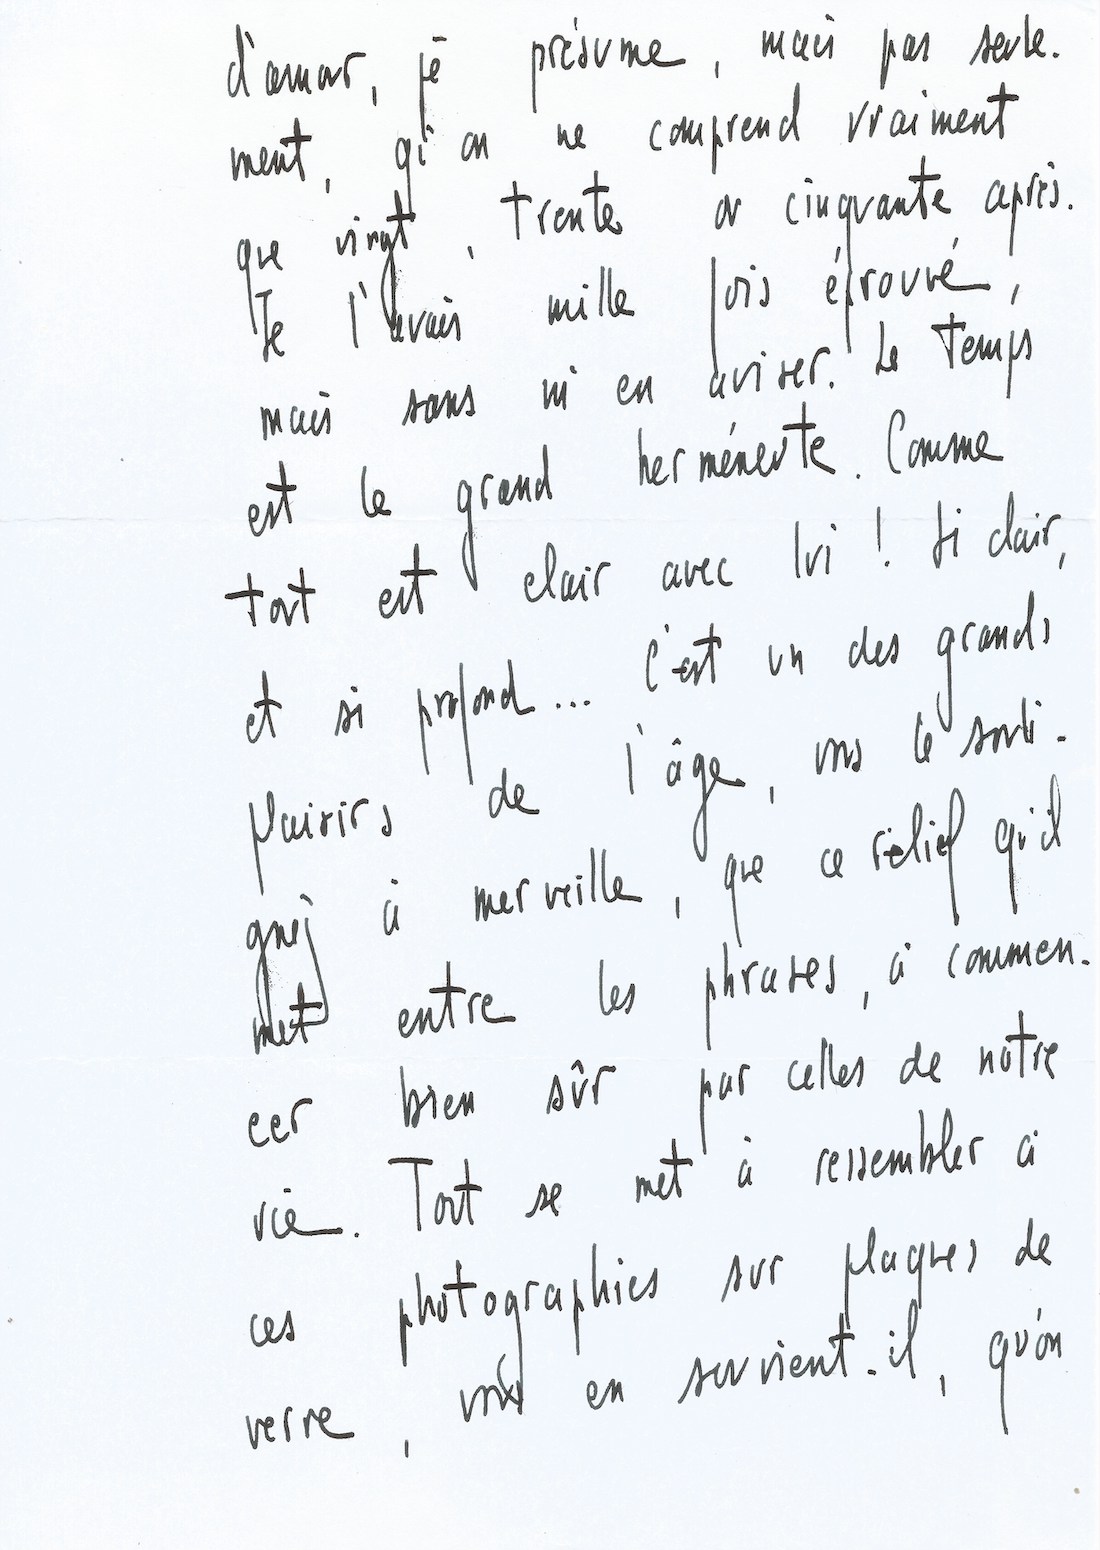 d'amour, je présume, mais pas seule-
ment, qu'on ne comprend vraiment
que vingt, trente ou cinquante après.
Je l'avais mille fois éprouvé,
mais sans m'en aviser. Le Temps
est le grand herméneute. Comme
tout est clair avec lui ! Si clair,
et si profond... C'est un des grands
plaisirs de l'âge, vous le souli-
gnez à merveille, que ce relief qu'il
met entre les phrases, à commen-
cer bien sûr par celles de notre
vie. Tout se met à ressembler à
ces photographies sur plaques de
verre, vous en souvient-il, qu'on